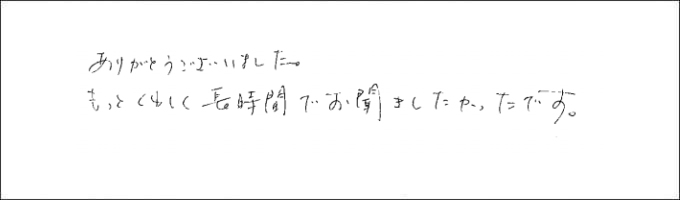 ありがとうございました。
もっとくわしく長時間でお聞きしたかったです。